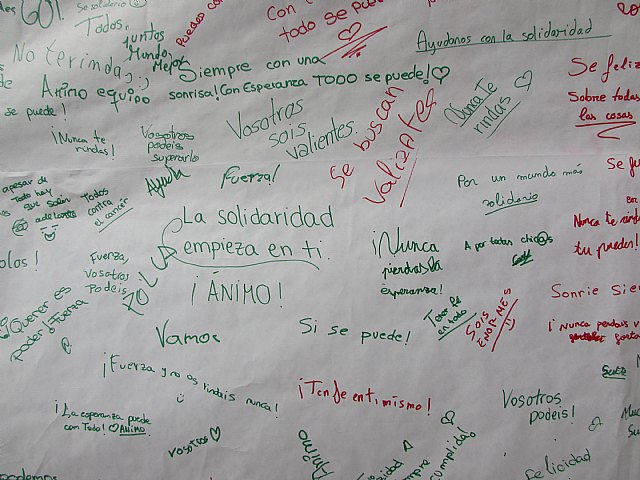 GO!
Se solidario
Todos,
juntos
Mundo,
Mejor
Puedes con
Con
todo se puede
Ayudanos con la solidaridad
No te rindas
Animo equipo
se puede!
Siempre con una
sonrisa! Con Esperanza TODO se puede!
Se feliz
Sobre todas
las cosas
¡Nunca te
rindas!
Vosotros
podeis
superarlo
Ayuda
Vosotros
sois
valientes.
Fuerza!
Se buscan
Valientes
Nunca Te
rindas
apesar de
Todo hay
que salir
adelante
Todos
contra
el cancer
La solidaridad
empieza en ti.
¡ÁNIMO!
Por un mundo más
solidario
Se fu
Nunca te rindas
tu puedes!
¡Nunca
pierdas la
esperanza!
A por todas chic@s
Fuerza,
Vosotros
Podeis
¡Querer es
poder! Fuerza
Vamos
Si se puede!
Tener fe
en todo
SOIS
ENORMES
Sonrie Siem
¡Nunca perdais
Suerte
¡Fuerza y no os rindais nunca!
¡Ten fe en ti mismo!
¡La esperanza puede
con Todo! ÁNIMO
Vosotros
Vosotros
podeis!
Ánimo
cumplida!
felicidad
podemos